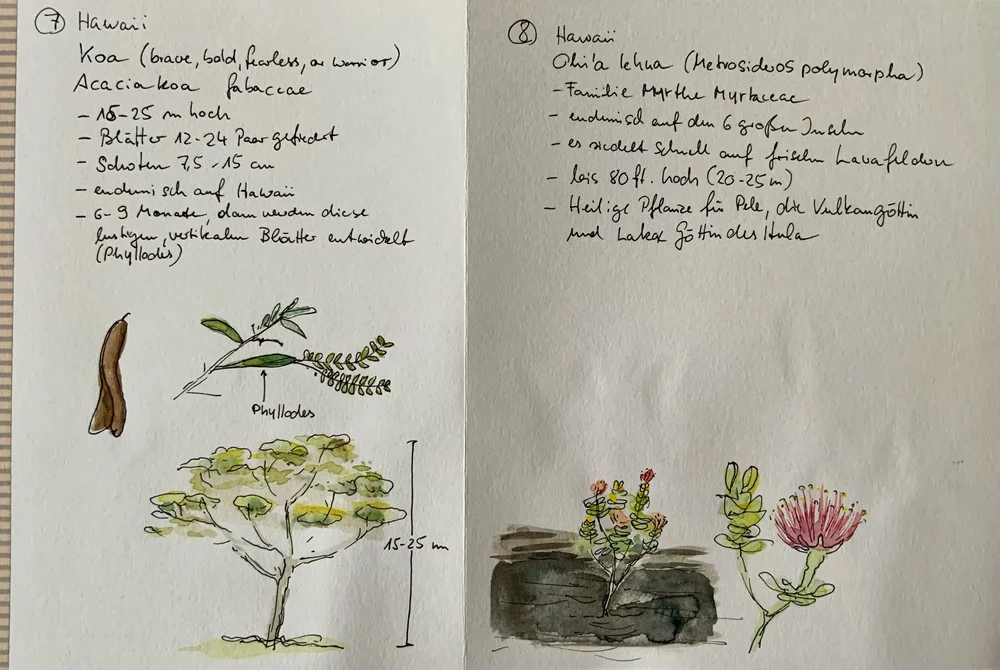 7 Hawaii
Koa (brave, bold, fearless, or warrior)
Acacia koa fabaceae
- 15-25 m hoch
- Blätter 12-24 Paar gefiedert
- Schoten 7,5-15 cm
- endemisch auf Hawaii
- 6-9 Monate, dann werden diese
lustigen, vertikalen Blätter entwickelt
(Phyllodes)
Phyllodes
15-25 m
8 Hawaii
Ohi'a lehua (Metrosideros polymorpha)
- Familie Myrthe Myrtaceae
- endemisch auf den 6 großen Inseln
- es siedelt schnell auf frischen Lavafeldern
- bis 80 ft. hoch (20-25 m)
- Heilige Pflanze für Pele, die Vulkangöttin
und Laka Göttin des Hula